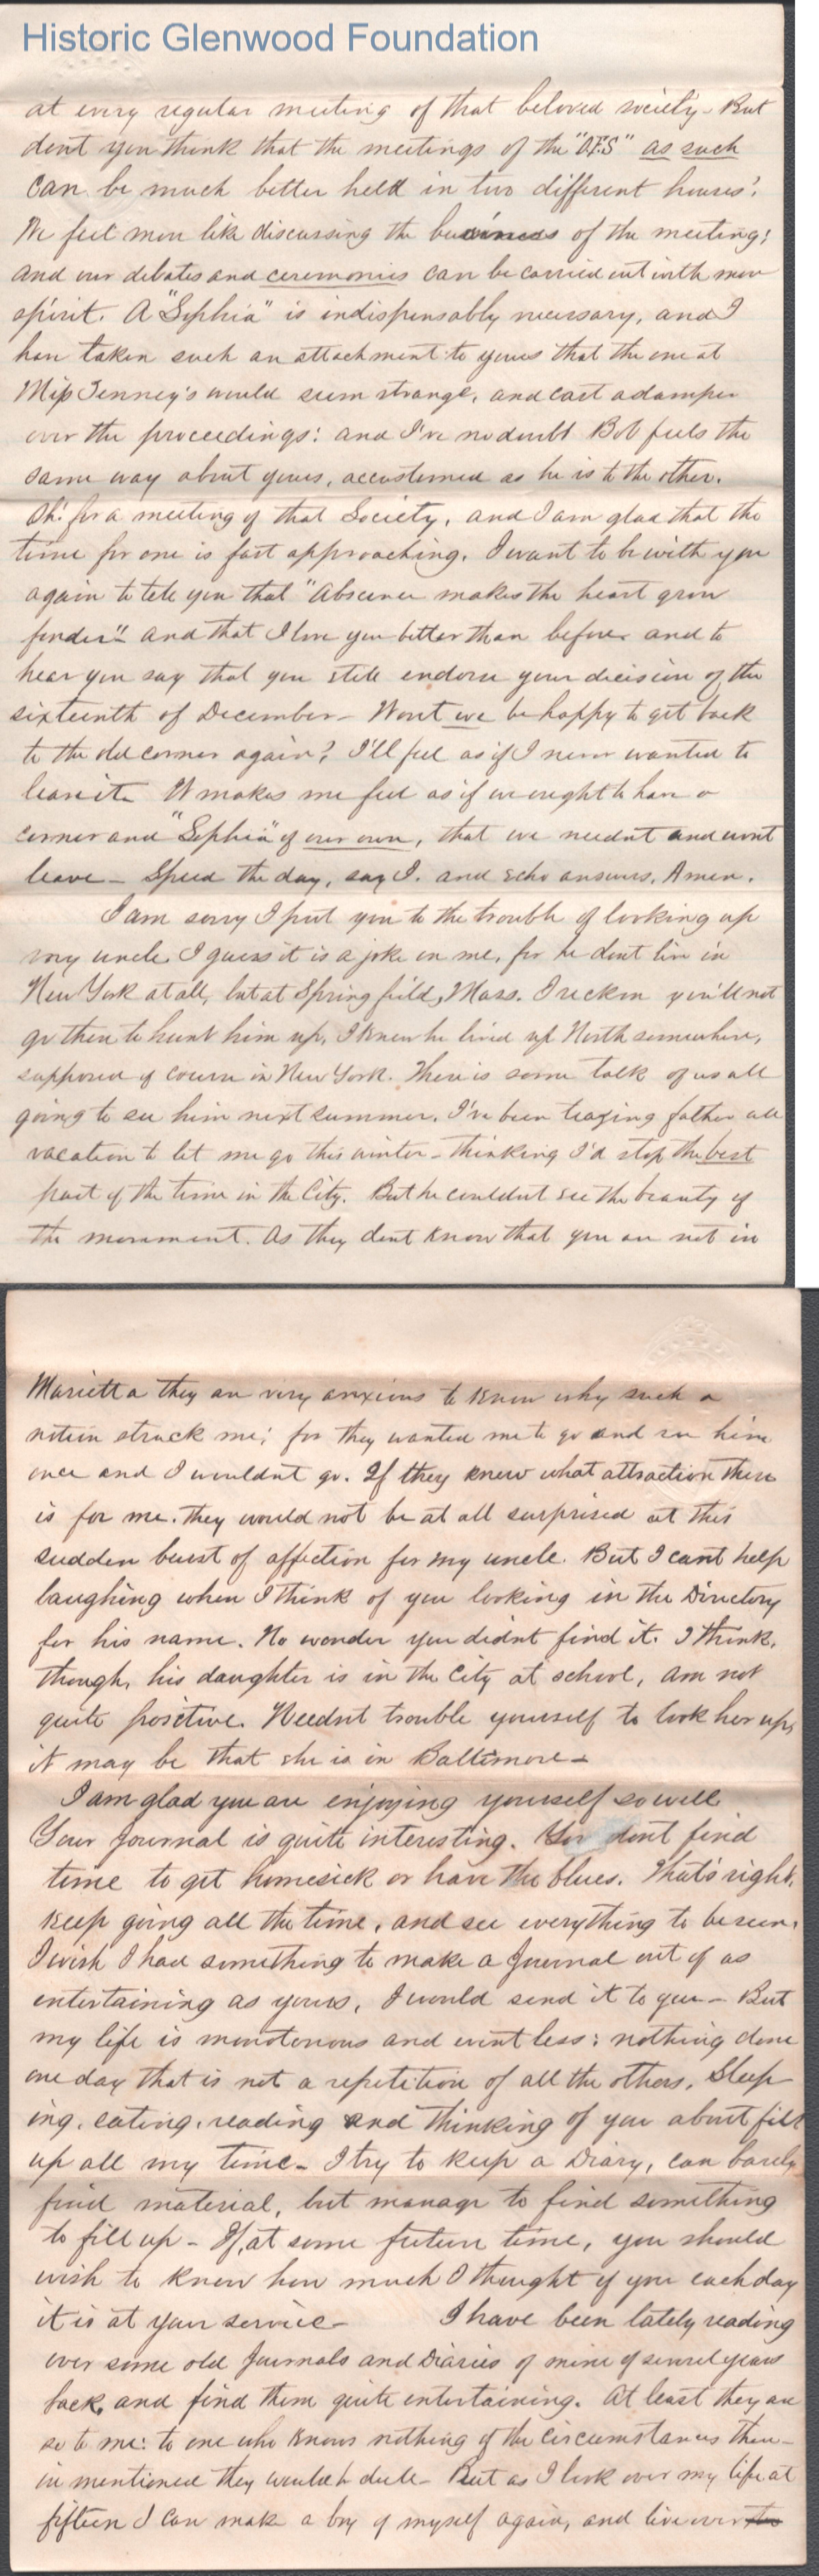 Historic Glenwood Foundation
at every regular meeting of that beloved society - But
dont you think that the meetings of the "O.F.S" as such
can be much better held in two different houses?
We feel more like discussing the business of the meeting;
and our debates and ceremonies can be carried out with more
spirit. A "Sophia" is indispensably necessary, and I
have taken such an attachment to yours that the one at
Miss Tenney's would seem strange, and cast a damper
over the proceedings: and I've no doubt Bob feels the
same way about yours, accustomed as he is to the other.
Oh! for a meeting of that Society, and I am glad that the
time for one is fast approaching. I want to be with you
again to tell you that "Absence makes the heart grow
fonder" and that I love you better than before and to
hear you say that you still endorse your decision of the
sixteenth of December - Wont we be happy to get back
to the old corner again? I'll feel as if I never wanted to
leave it. It makes me feel as if we ought to have a
corner and "Sophia" of our own, that we neednt and wont
leave - Speed the day, say I. and echo answers, Amen.
I am sorry I put you to the trouble of looking up
my uncle. I guess it is a joke on me, for he dont live in
New York at all, but at Springfield, Mass. I reckon you'll not
go there to hunt him up. I knew he lived up North somewhere,
supposed of course in New York. There is some talk of us all
going to see him next summer. I've been teasing father all
vacation to let me go this winter - thinking I'd stop the best
part of the time in the City. But he couldnt see the beauty of
the movement. As they dont know that you are not in
Marietta they are very anxious to know why such a
notion struck me; for they wanted me to go and see him
once and I wouldnt go. If they knew what attraction there
is for me. they would not be at all surprised at this
sudden burst of affection for my uncle. But I cant help
laughing when I think of you looking in the Directory
for his name. No wonder you didnt find it. I think,
though, his daughter is in the City at school, am not
quite positive. Neednt trouble yourself to look her up,
it may be that she is in Baltimore -
I am glad you are enjoying yourself so well
Your Journal is quite interesting. You dont find
time to get homesick or have the blues. That's right,
keep going all the time, and see everything to be seen.
I wish I had something to make a Journal out of as
entertaining as yours, I would send it to you - But
my life is monotonous and eventless: nothing done
one day that is not a repetition of all the others. Sleep-
ing, eating, reading and thinking of you about fill
up all my time - I try to keep a Diary, can barely
find material, but manage to find something
to fill up - If, at some future time, you should
wish to know how much I thought of you each day
it is at your service - I have been lately reading
over some old Journals and Diaries of mine of several years
back, and find them quite entertaining. At least they are
so to me: to one who knows nothing of the circumstances there-
in mentioned they would be dull - But as I look over my life at
fifteen I can make a boy of myself again, and live over